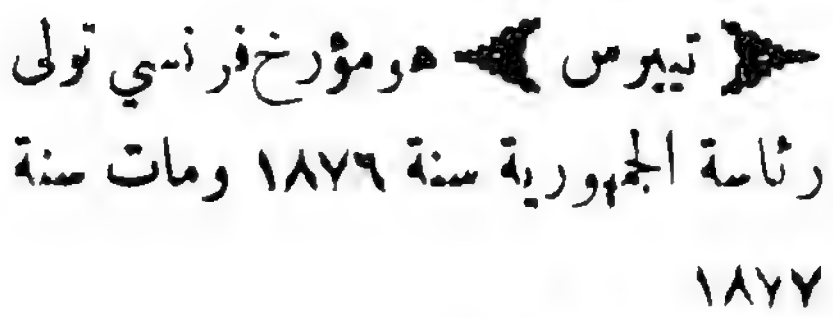 ﴿ تييرس ﴾ هو مؤرخ فرنسي تولى
رئاسة الجمهورية سنة ١٨٧٦ ومات سنة
١٨٧٧